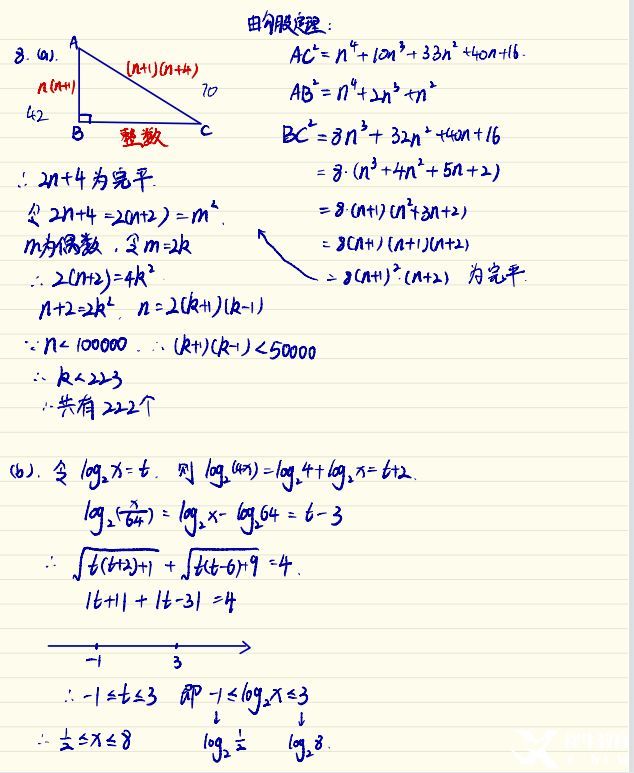 由勾股定理:
8. (a).
A
n(n+1)
(n+1)(n+4)
42
70
B
整数
C
AC² = n⁴+10n³+33n²+40n+16.
AB² = n⁴+2n³+n²
BC² = 8n³+32n²+40n+16
= 8·(n³+4n²+5n+2)
= 8·(n+1)(n²+3n+2)
= 8(n+1)(n+1)(n+2)
= 8(n+1)²·(n+2) 为完平.
∴ 2n+4 为完平.
令 2n+4 = 2(n+2) = m².
m为偶数, 令 m=2k
∴ 2(n+2) = 4k²
n+2=2k², n=2(k+1)(k-1)
∵ n<100000 ∴ (k+1)(k-1)<50000
∴ k<223
∴ 共有 222个
(b). 令 log₂x=t. 则 log₂(4x)=log₂4+log₂x=t+2.
log₂(x/64) = log₂x - log₂64 = t-3
∴ √(t(t+2)+1) + √(t(t-6)+9) = 4.
|t+1| + |t-3| = 4
-1 3
∴ -1≤t≤3 即 -1≤log₂x≤3
∴ 1/2≤x≤8 log₂1/2 log₂8.